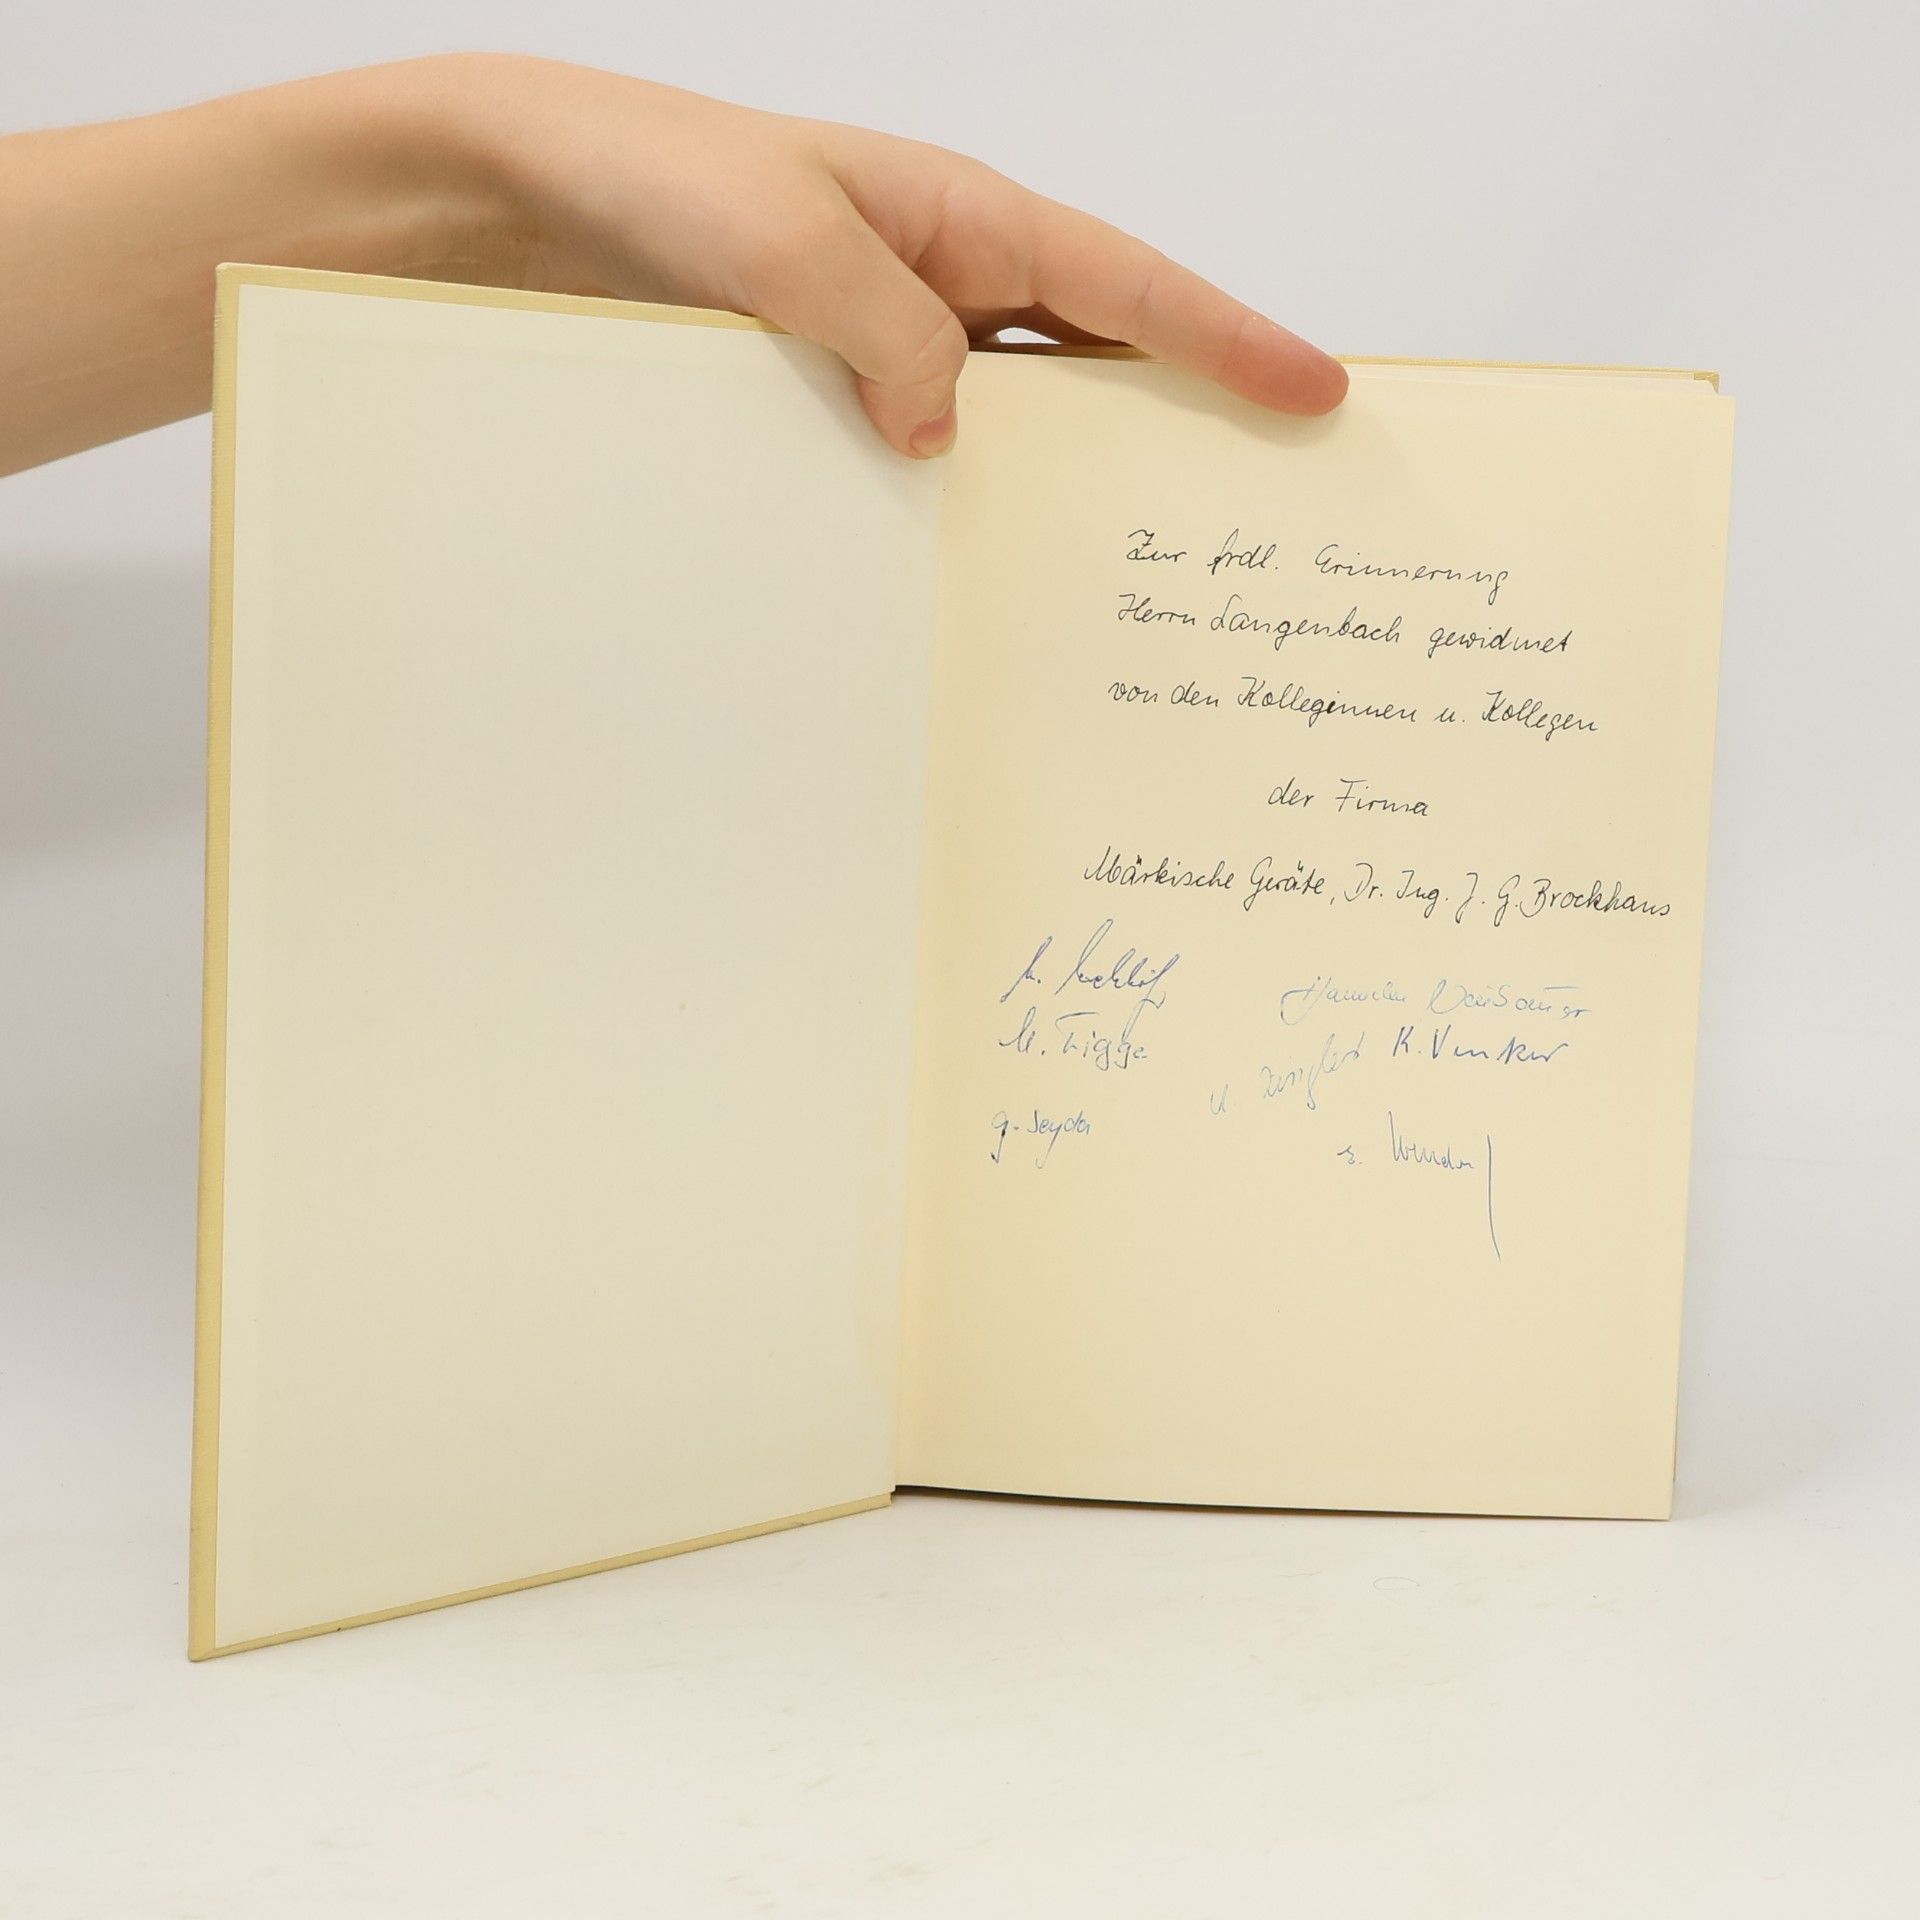 Zur frdl. Erinnerung
Herrn Langenbach gewidmet
von den Kolleginnen u. Kollegen
der Firma
Märkische Geräte, Dr. Ing. J. G. Brockhaus
M. Figge
K. Vinker
G. Seyda